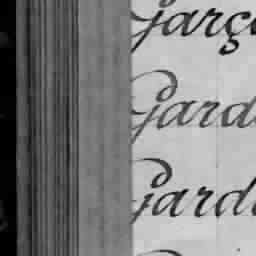 Garç
Gard
Gard